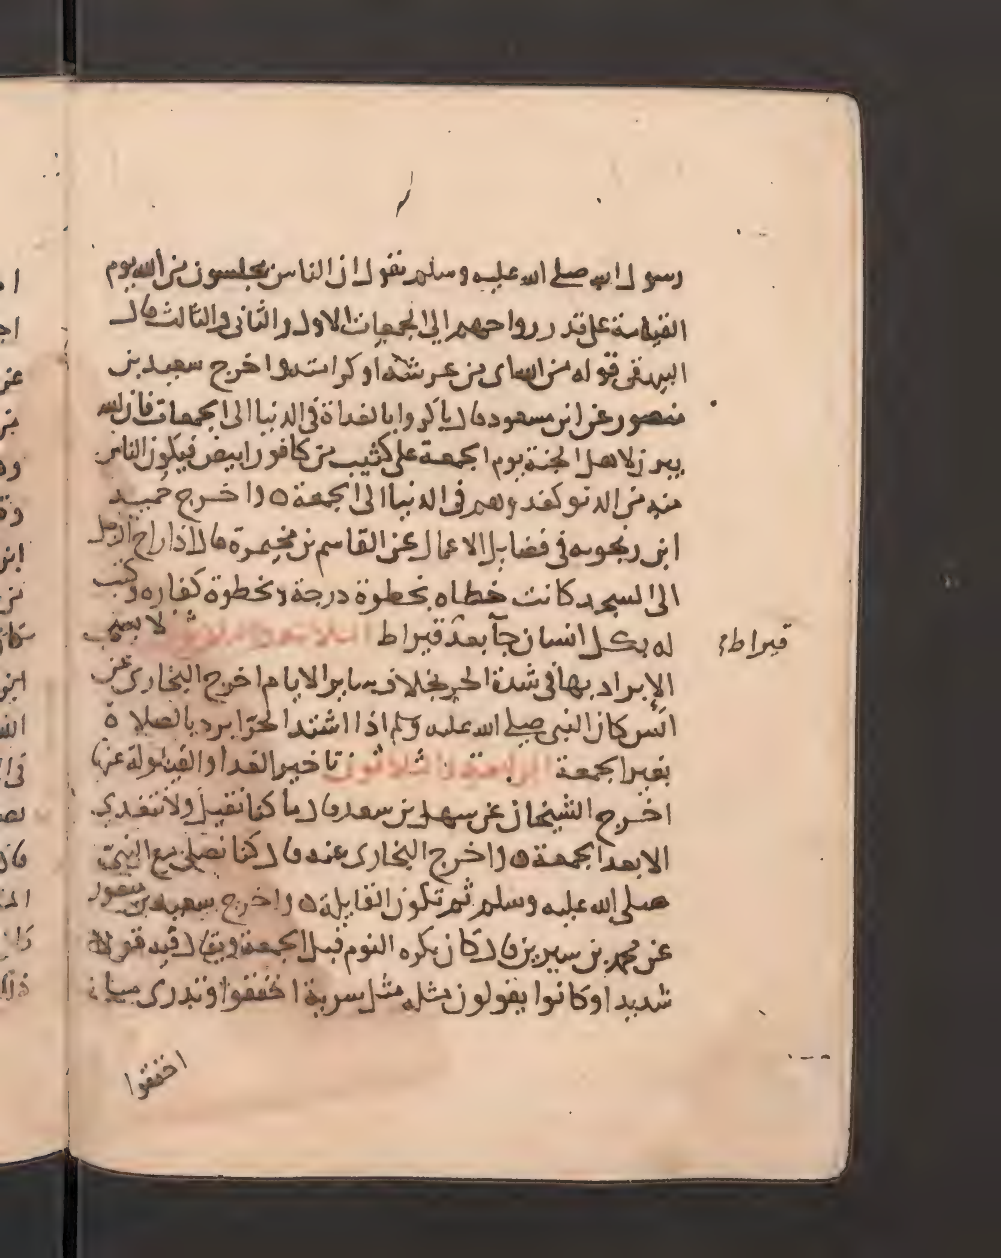 رسول الله صلى الله عليه وسلم يقول ان الناس يجلسون من الله يوم
القيامة على قدر رواحهم الى الجمعات الاول والثاني والثالث قال
البيهقي قوله من الله اى من عرشه او كرامته واخرج سعيد بن
منصور عن ابن مسعود قال باكروا بالغداة في الدنيا الى الجمعات فان الله
يبرز لاهل الجنة يوم الجمعة على كثيب من كافور ابيض فيكون الناس
منه من الدنو كغدوهم في الدنيا الى الجمعة ه واخرج حميد
ابن زنجويه في فضايل الاعمال عن القاسم بن مخيمرة قال اذا راح الرجل
الى المسجد كانت خطاه بخطوة درجة وبخطوة كفاره وكتب
له بكل انسان جآ بعده قيراط الثالثة والثلاثون لا يستحب
قيراط
الإبراد بها في شدة الحر بخلاف سايرالايام اخرج البخارى عن
انس كان النبى صلى الله عليه وسلم اذا اشتد الحر ابرد بالصلاة
بغير الجمعة الرابعة والثلاثون تاخير الغدا والقيلولة عنها
اخرج الشيخان عن سهل بن سعد قال ما كنا نقيل ولا نتغدى
الا بعد الجمعة ه واخرج البخارى عنه قال كنا نصلى مع النبي
صلى الله عليه وسلم ثم تكون القايلة ه واخرج سعيد بن منصور
عن محمد بن سيرين قال كان يكره النوم قبل الجمعة ويقال فيه قولا
شديدا وكانوا يقولون مثله مثل سرية اخفقوا وتدرى ما
اخفقوا